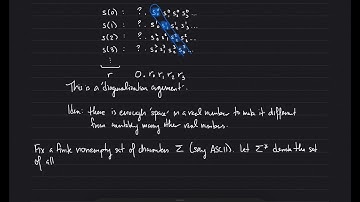 s(0) : ? . s₀⁰ s₁⁰ s₂⁰ s₃⁰ ...
s(1) : ? . s₀¹ s₁¹ s₂¹ s₃¹ ...
s(2) : ? . s₀² s₁² s₂² s₃² ...
s(3) : ? . s₀³ s₁³ s₂³ s₃³ ...
⋮
r 0. r₀ r₁ r₂ r₃
This is a "diagonalization argument".
Idea: there is enough "space" in a real number to make it different
from countably many other real numbers.
Fix a finite nonempty set of characters Σ (say ASCII). Let Σ* denote the set
of all